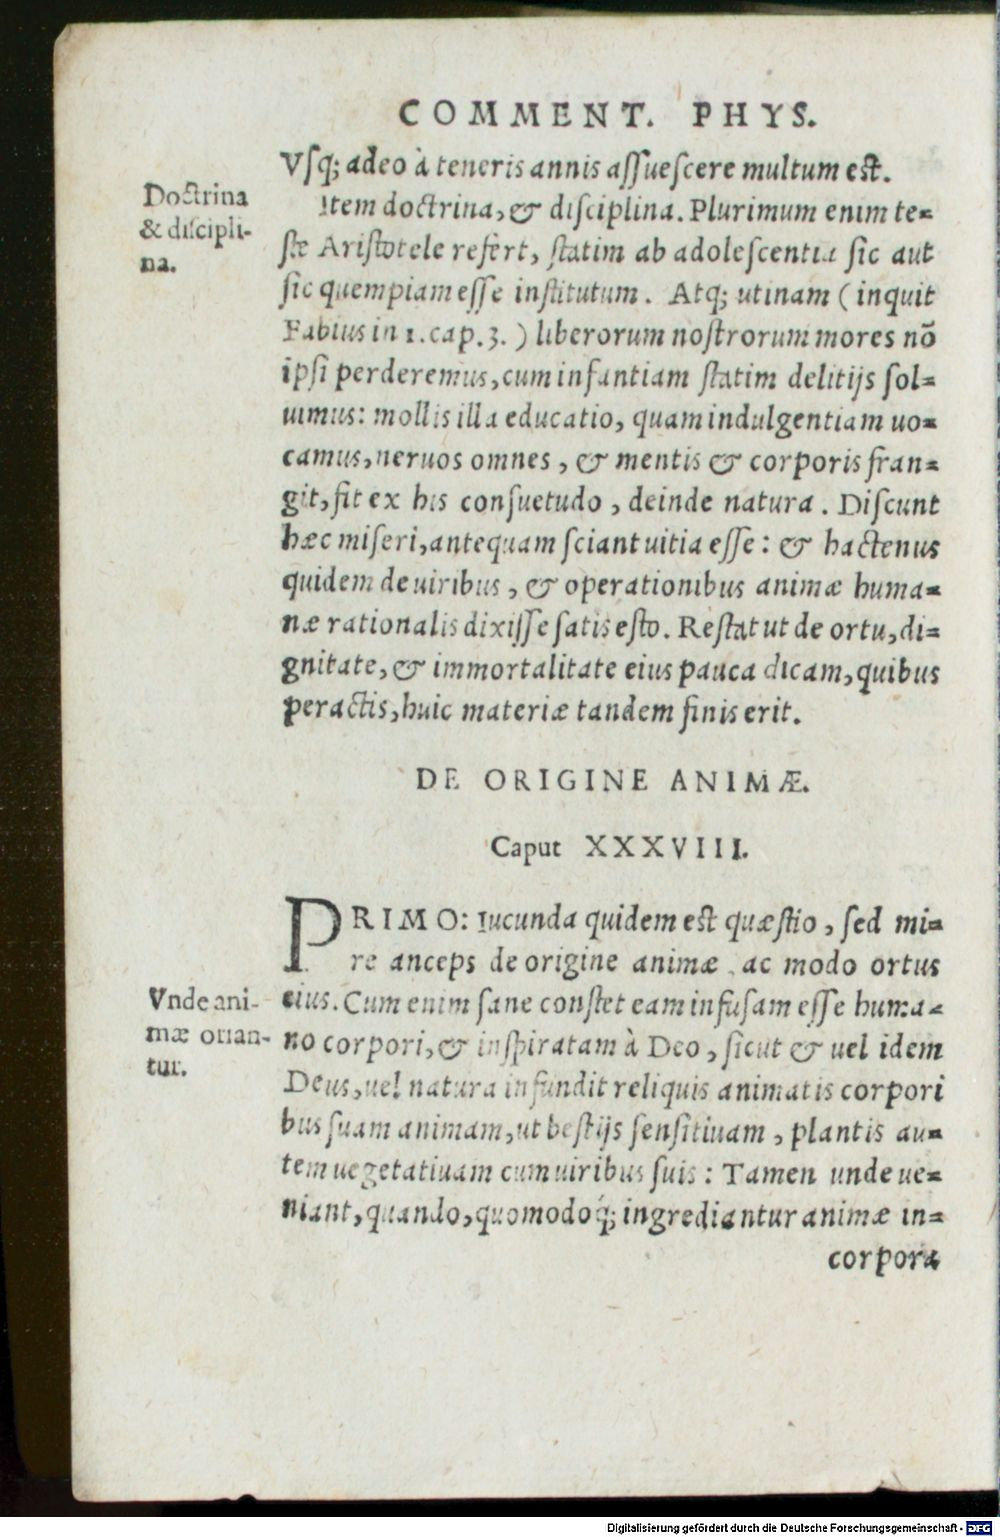 COMMENT. PHYS.
Vſq; adeo à teneris annis aſſueſcere multum est.
Doctrina
& diſcipli-
na.
Item doctrina, & diſciplina. Plurimum enim te-
ſte Ariſtotele refert, ſtatim ab adoleſcentia ſic aut
ſic quempiam eſſe inſtitutum. Atq; utinam (inquit
Fabius in 1. cap. 3.) liberorum noſtrorum mores nõ
ipſi perderemus, cum infantiam ſtatim delitijs ſol-
uimus: mollis illa educatio, quam indulgentiam uo-
camus, neruos omnes, & mentis & corporis fran-
git, fit ex his conſuetudo, deinde natura. Diſcunt
hæc miſeri, antequam ſciant uitia eſſe: & hactenus
quidem de uiribus, & operationibus animæ huma-
næ rationalis dixiſſe ſatis eſto. Reſtat ut de ortu, di-
gnitate, & immortalitate eius pauca dicam, quibus
peractis, huic materiæ tandem finis erit.
DE ORIGINE ANIMÆ.
Caput XXXVIII.
PRIMO: Iucunda quidem est quæſtio, ſed mi-
re anceps de origine animæ, ac modo ortus
Vnde ani-
mæ orian-
tur.
eius. Cum enim ſane conſtet eam infuſam eſſe huma-
no corpori, & inſpiratam à Deo, ſicut & uel idem
Deus, uel natura infundit reliquis animatis corpori
bus ſuam animam, ut beſtijs ſenſitiuam, plantis au-
tem uegetatiuam cum uiribus ſuis: Tamen unde ue-
niant, quando, quomodoq́; ingrediantur animæ in-
corpora
Digitalisierung gefördert durch die Deutsche Forschungsgemeinschaft - DFG